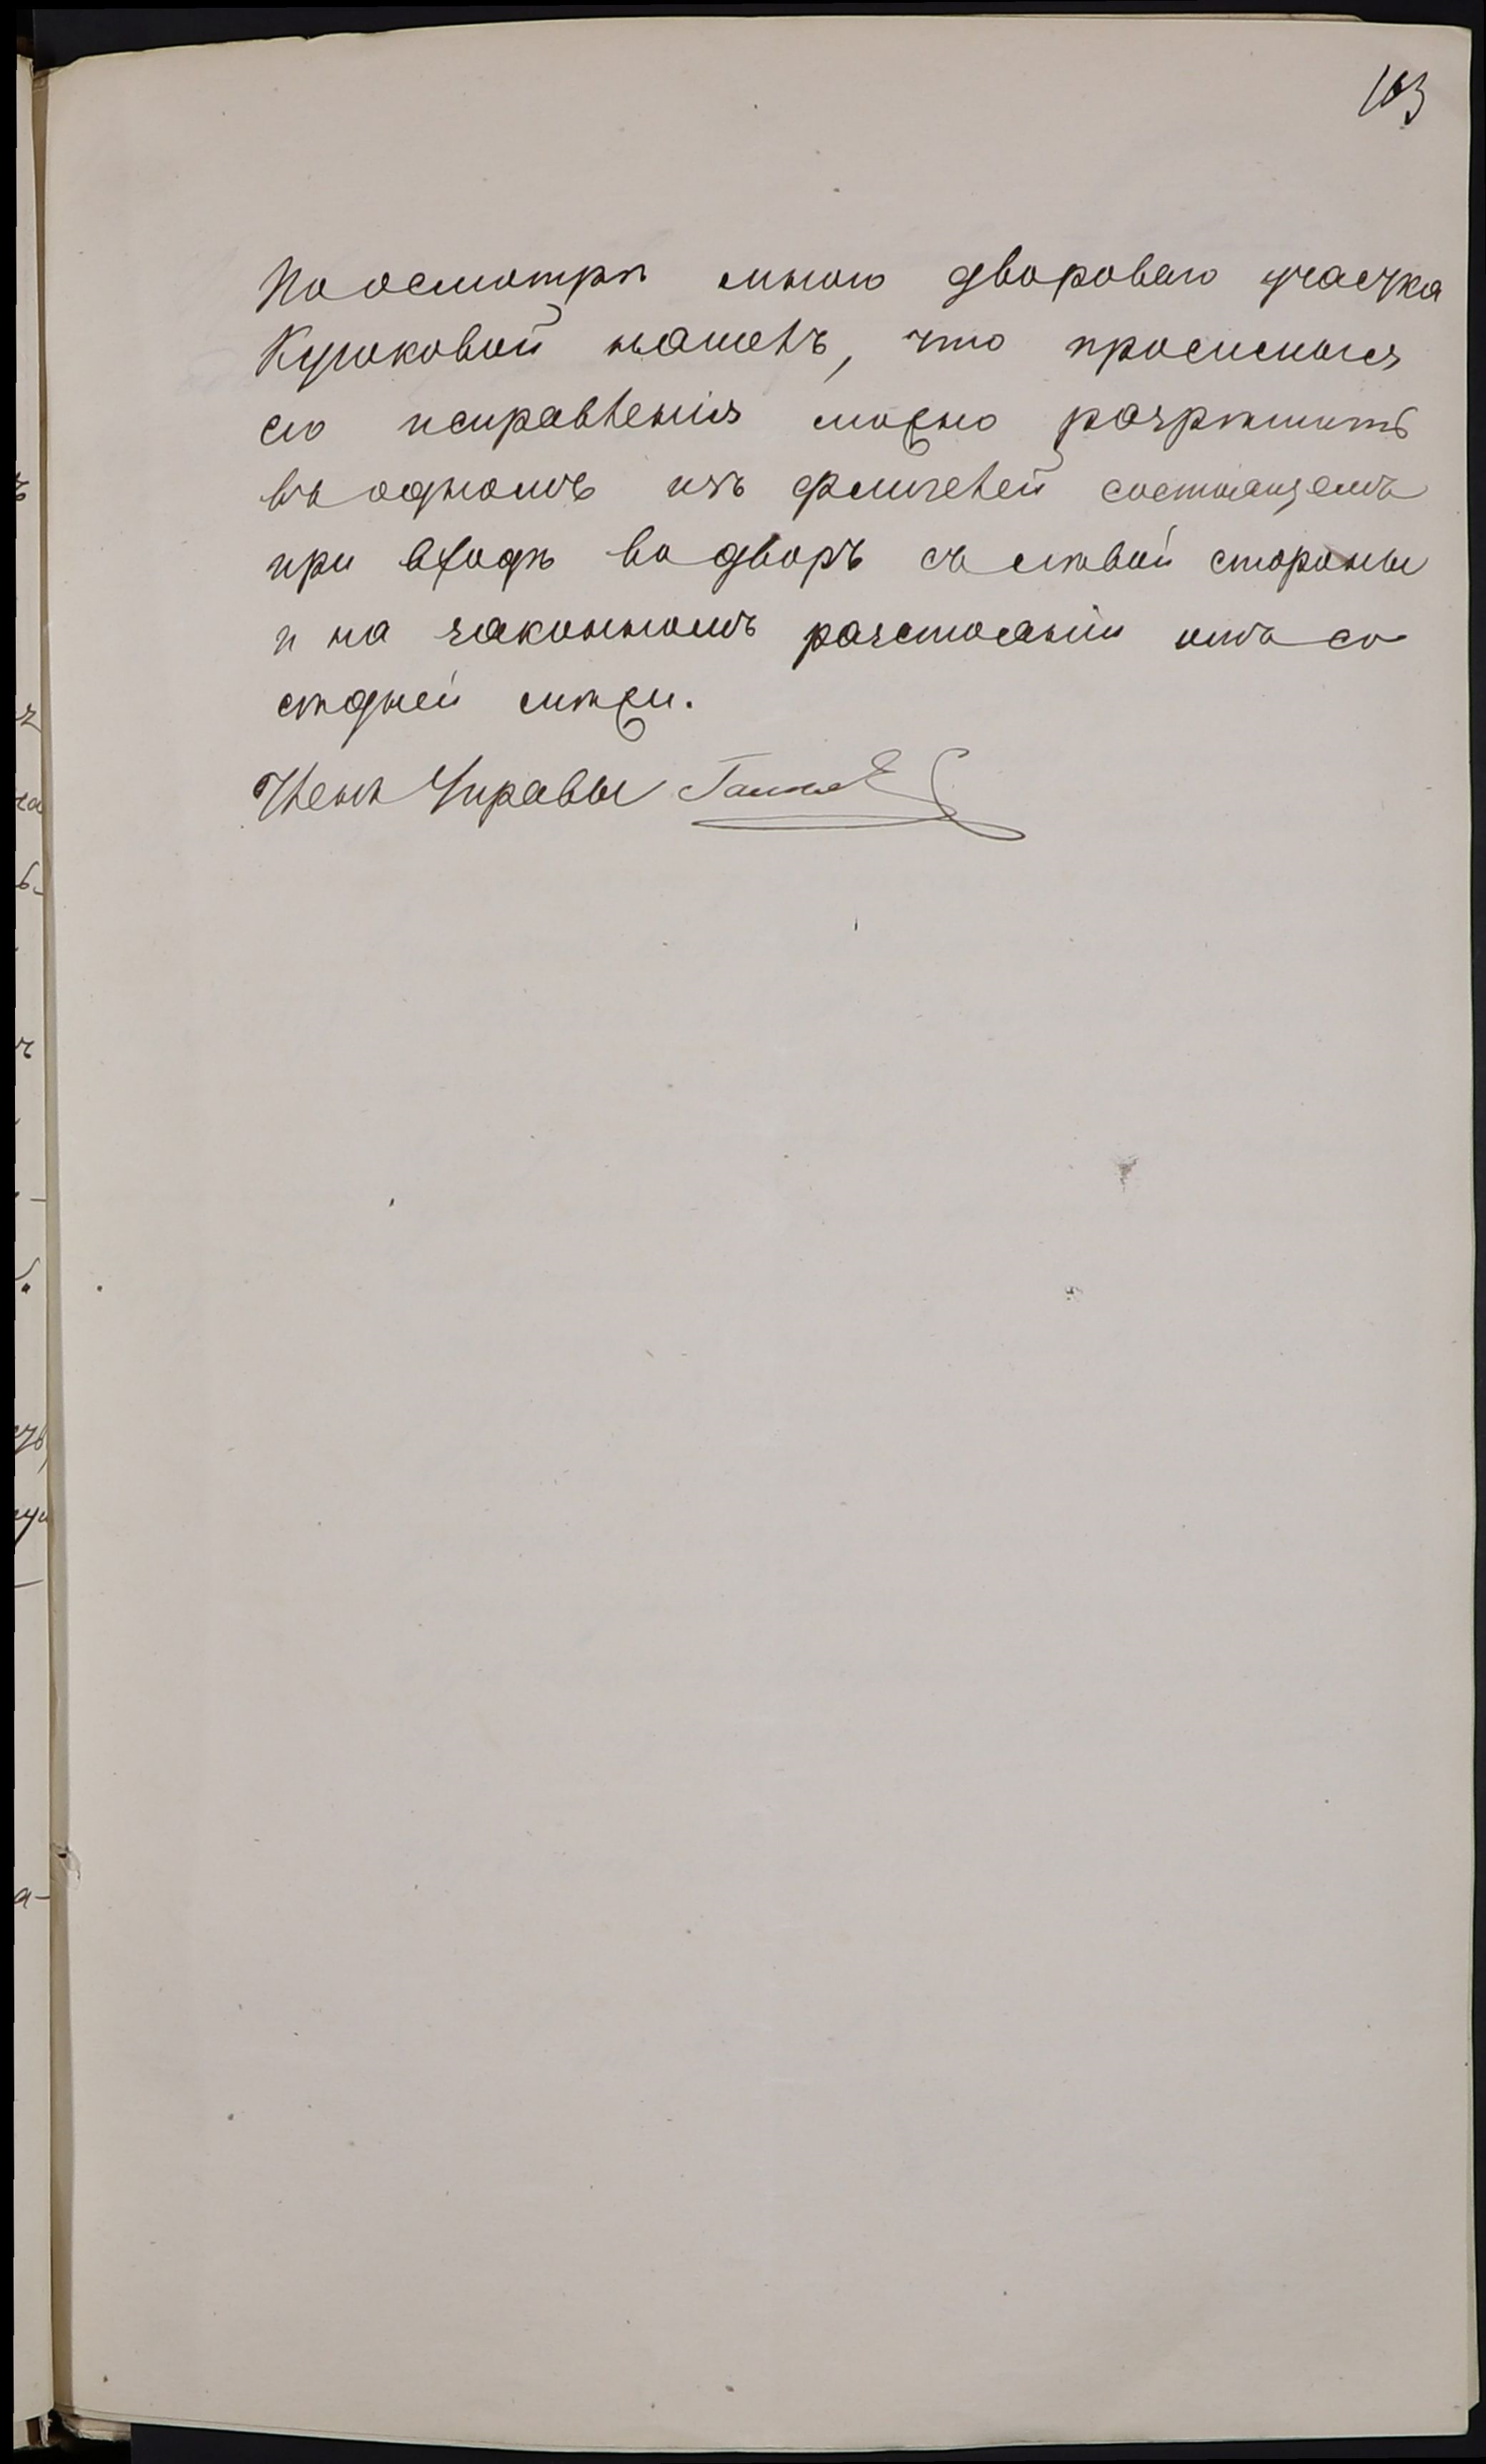 103
По осмотрѣ мною двороваго участка
Куроковой нашелъ, что просимыя
ею исправленія можно разрѣшить
въ одномъ изъ флигелей состоящемъ
при входѣ во дворъ съ лѣвой стороны
и на законномъ разстоаніи отъ со
сѣдней межи.
Членъ Управы